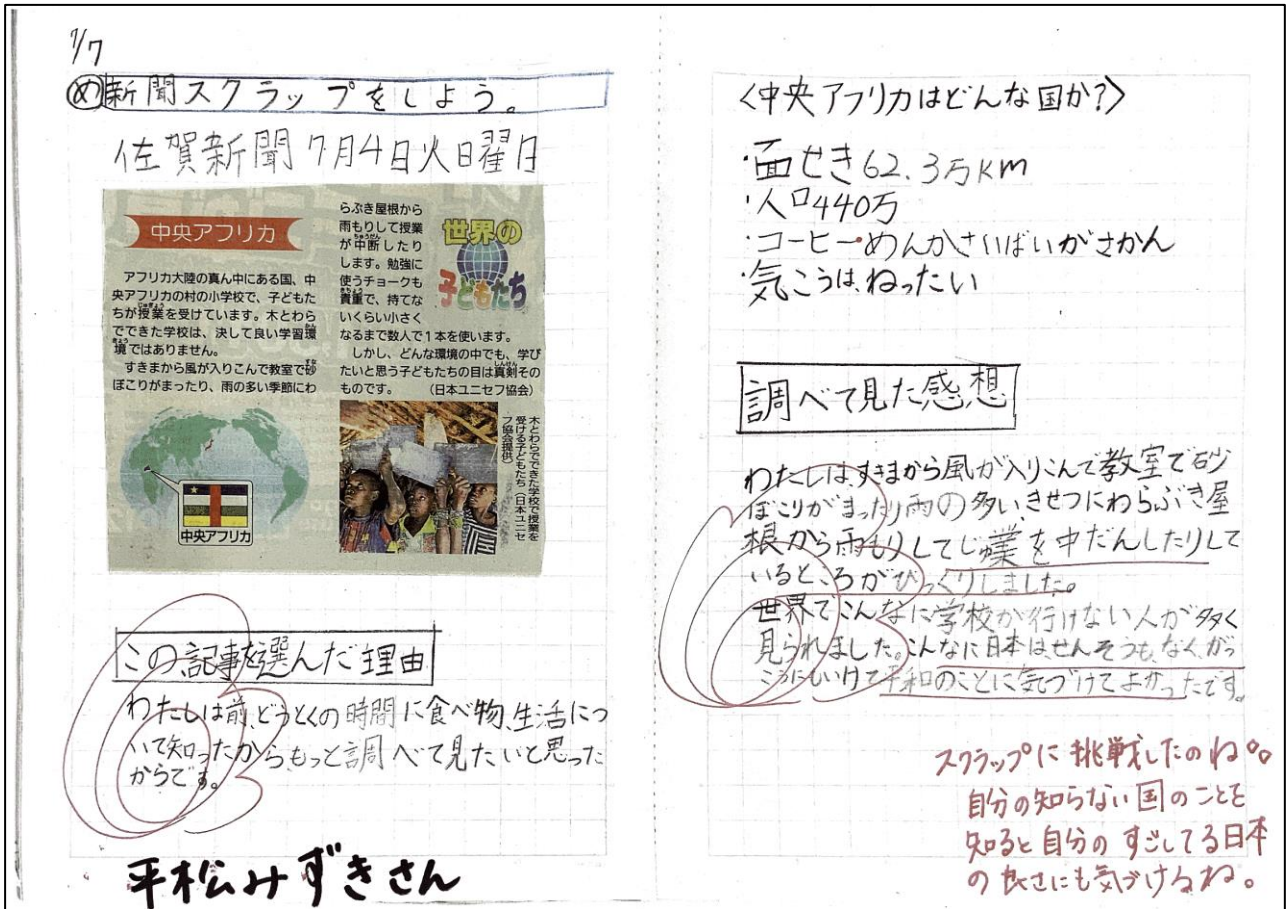 7/7
め 新聞スクラップをしよう。
佐賀新聞 7月4日火曜日
中央アフリカ
アフリカ大陸の真ん中にある国、中
央アフリカの村の小学校で、子どもた
ちが授業を受けています。木とわら
でできた学校は、決して良い学習環
境ではありません。
すきまから風が入りこんで教室で砂
ぼこりがまったり、雨の多い季節にわ
らぶき屋根から
雨もりして授業
が中断したり
します。勉強に
使うチョークも
貴重で、持てな
いくらい小さく
なるまで数人で1本を使います。
しかし、どんな環境の中でも、学び
たいと思う子どもたちの目は真剣その
ものです。 (日本ユニセフ協会)
世界の
子どもたち
中央アフリカ
木とわらでできた学校で授業を
受ける子どもたち(日本ユニセ
フ協会提供)
この記事を選んだ理由
わたしは前、どうとくの時間に食べ物、生活につ
いて知ったから、もっと調べて見たいと思った
からです。
平松みずきさん
〈中央アフリカはどんな国か?〉
・面せき62.3万km
・人口440万
・コーヒーめんかさいばいがさかん
・気こうは、ねったい
調べて見た感想
わたしはすきまから風が入りこんで教室で砂
ぼこりがまったり雨の多いきせつにわらぶき屋
根から雨もりしてじゅ業を中だんしたりして
いるところがびっくりしました。
世界でこんなに学校が行けない人が多く
見られました。こんなに日本は、せんそうも、なく、がっ
こうにもいけて平和のことに気づけてよかったです。
スクラップに挑戦したのね。
自分の知らない国のことを
知ると自分のすごしてる日本
の良さにも気づけるね。